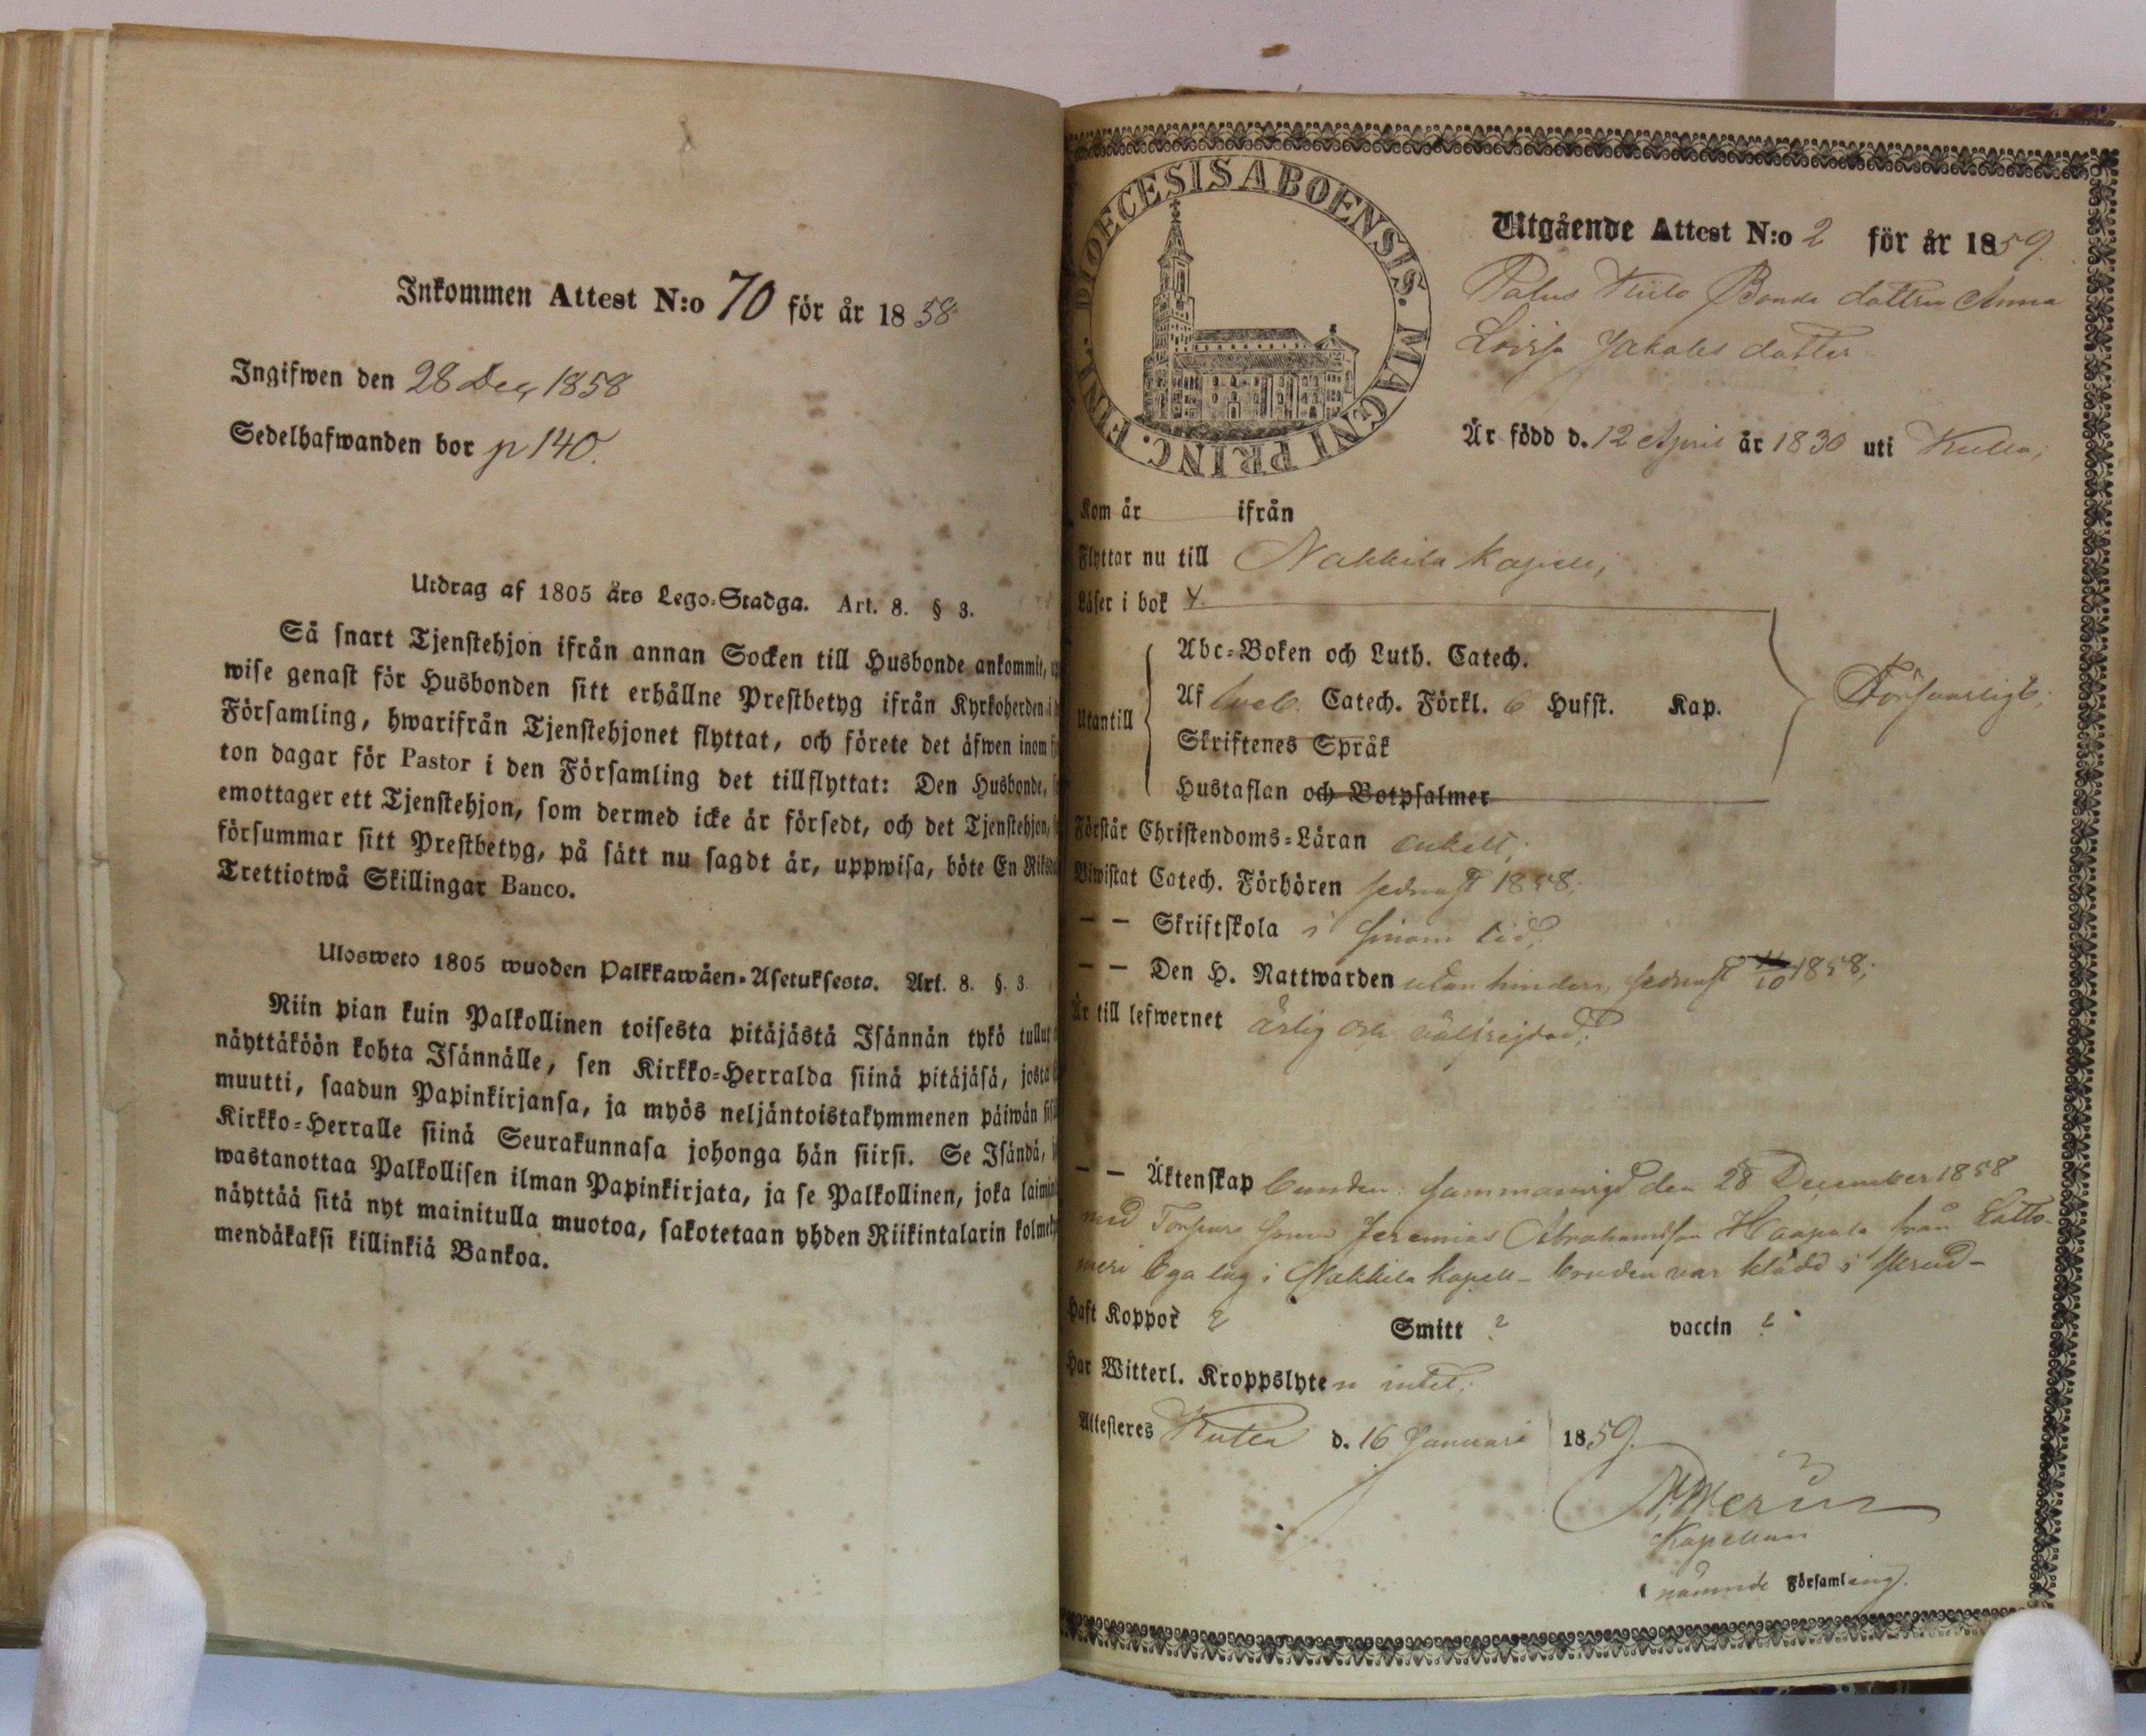 Inkommen Attest N:o 70 för år 1858
Ingifwen den 28 Dec, 1858
Sedelhafwanden bor p 140.
Utdrag af 1805 års Lego-Stadga. Art. 8. § 3.
Så snart Tjenstehjon ifrån annan Socken till Husbonde ankommit,
wise genast för Husbonden sitt erhållne Prestbetyg ifrån Kyrkoherden i
Församling, hwarifrån Tjenstehjonet flyttat, och förete det äfwen inom
ton dagar för Pastor i den Församling det tillflyttat: Den Husbonde,
emottager ett Tjenstehjon, som dermed icke är försedt, och det Tjenstehjon,
försummar sitt Prestbetyg, på sätt nu sagdt är, uppwisa, böte En
Trettiotwå Skillingar Banco.
Ulosweto 1805 wuoden Palkkawäen-Asetuksesta. Art. 8. §. 3.
Niin pian kuin Palkollinen toisesta pitäjästä Isännän tykö tullut
näyttäköön kohta Isännälle, sen Kirkko-Herralda siinä pitäjäsä, josta
muutti, saadun Papinkirjansa, ja myös neljäntoistakymmenen päiwän
Kirkko-Herralle siinä Seurakunnasa johonga hän siirsi. Se Isändä,
wastanottaa Palkollisen ilman Papinkirjata, ja se Palkollinen, joka
näyttää sitä nyt mainitulla muotoa, sakotetaan yhden Riikintalarin
mendäkaksi killinkiä Bankoa.
DIOECESIS ABOENSIS. MAGNI PRINC. FINL.
Utgående Attest N:o 2 för år 1859.
Palus Bonde dottren Anna
Lovisa Jakobs dotter
Är född d. 12 April år 1830 uti Kulla,
Kom år ifrån
Flyttar nu till Nakkila Kapell,
Läser i bok
Abc-Boken och Luth. Catech.
Utantill Af Catech. Förkl. Hufst. Kap. Försvarligt;
Skriftenes Språk
Hustaflan och Botpsalmer
Förstår Christendoms-Läran enkelt;
Biwistat Catech. Förhören sednast 1858;
— — Skriftskola i sinom tid;
— — Den H. Nattwarden utan hinder, sednast 1858;
Är till lefwernet ärlig och välfrejdad;
— — Äktenskap bunden: sammanvigd den 28 December 1858
med Torpare sonen Jeremias Abrahamsson Haapala från Latto-
meri i Nakkila Kapell – bruden var klädd i skrud –
Haft Koppor ? Smitt ? vaccin ?
Har Witterl. Kroppslyten intet;
Attesteres Kulla d. 16 Januari 1859.
Kapellan
i nämnde Församling.